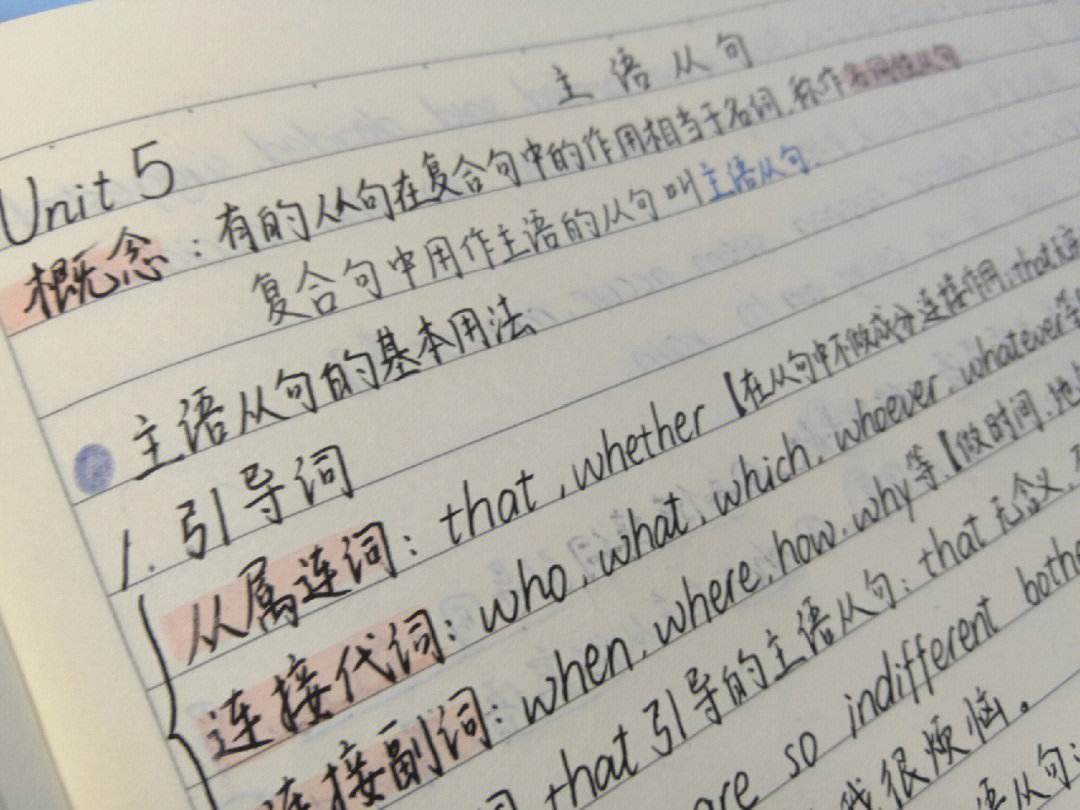 主语从句
Unit 5
概念：有的从句在复合句中的作用相当于名词，称作名词性从句
复合句中用作主语的从句叫主语从句.
主语从句的基本用法
1. 引导词
从属连词：that, whether【在从句中不做成分 连接作用, that无
连接代词：who, what, which, whoever, whatever等
连接副词：when, where, how, why 等【做时间、地
词 that 引导的主语从句：that 无含义,
are so indifferent bothe
我很烦恼。
语从句